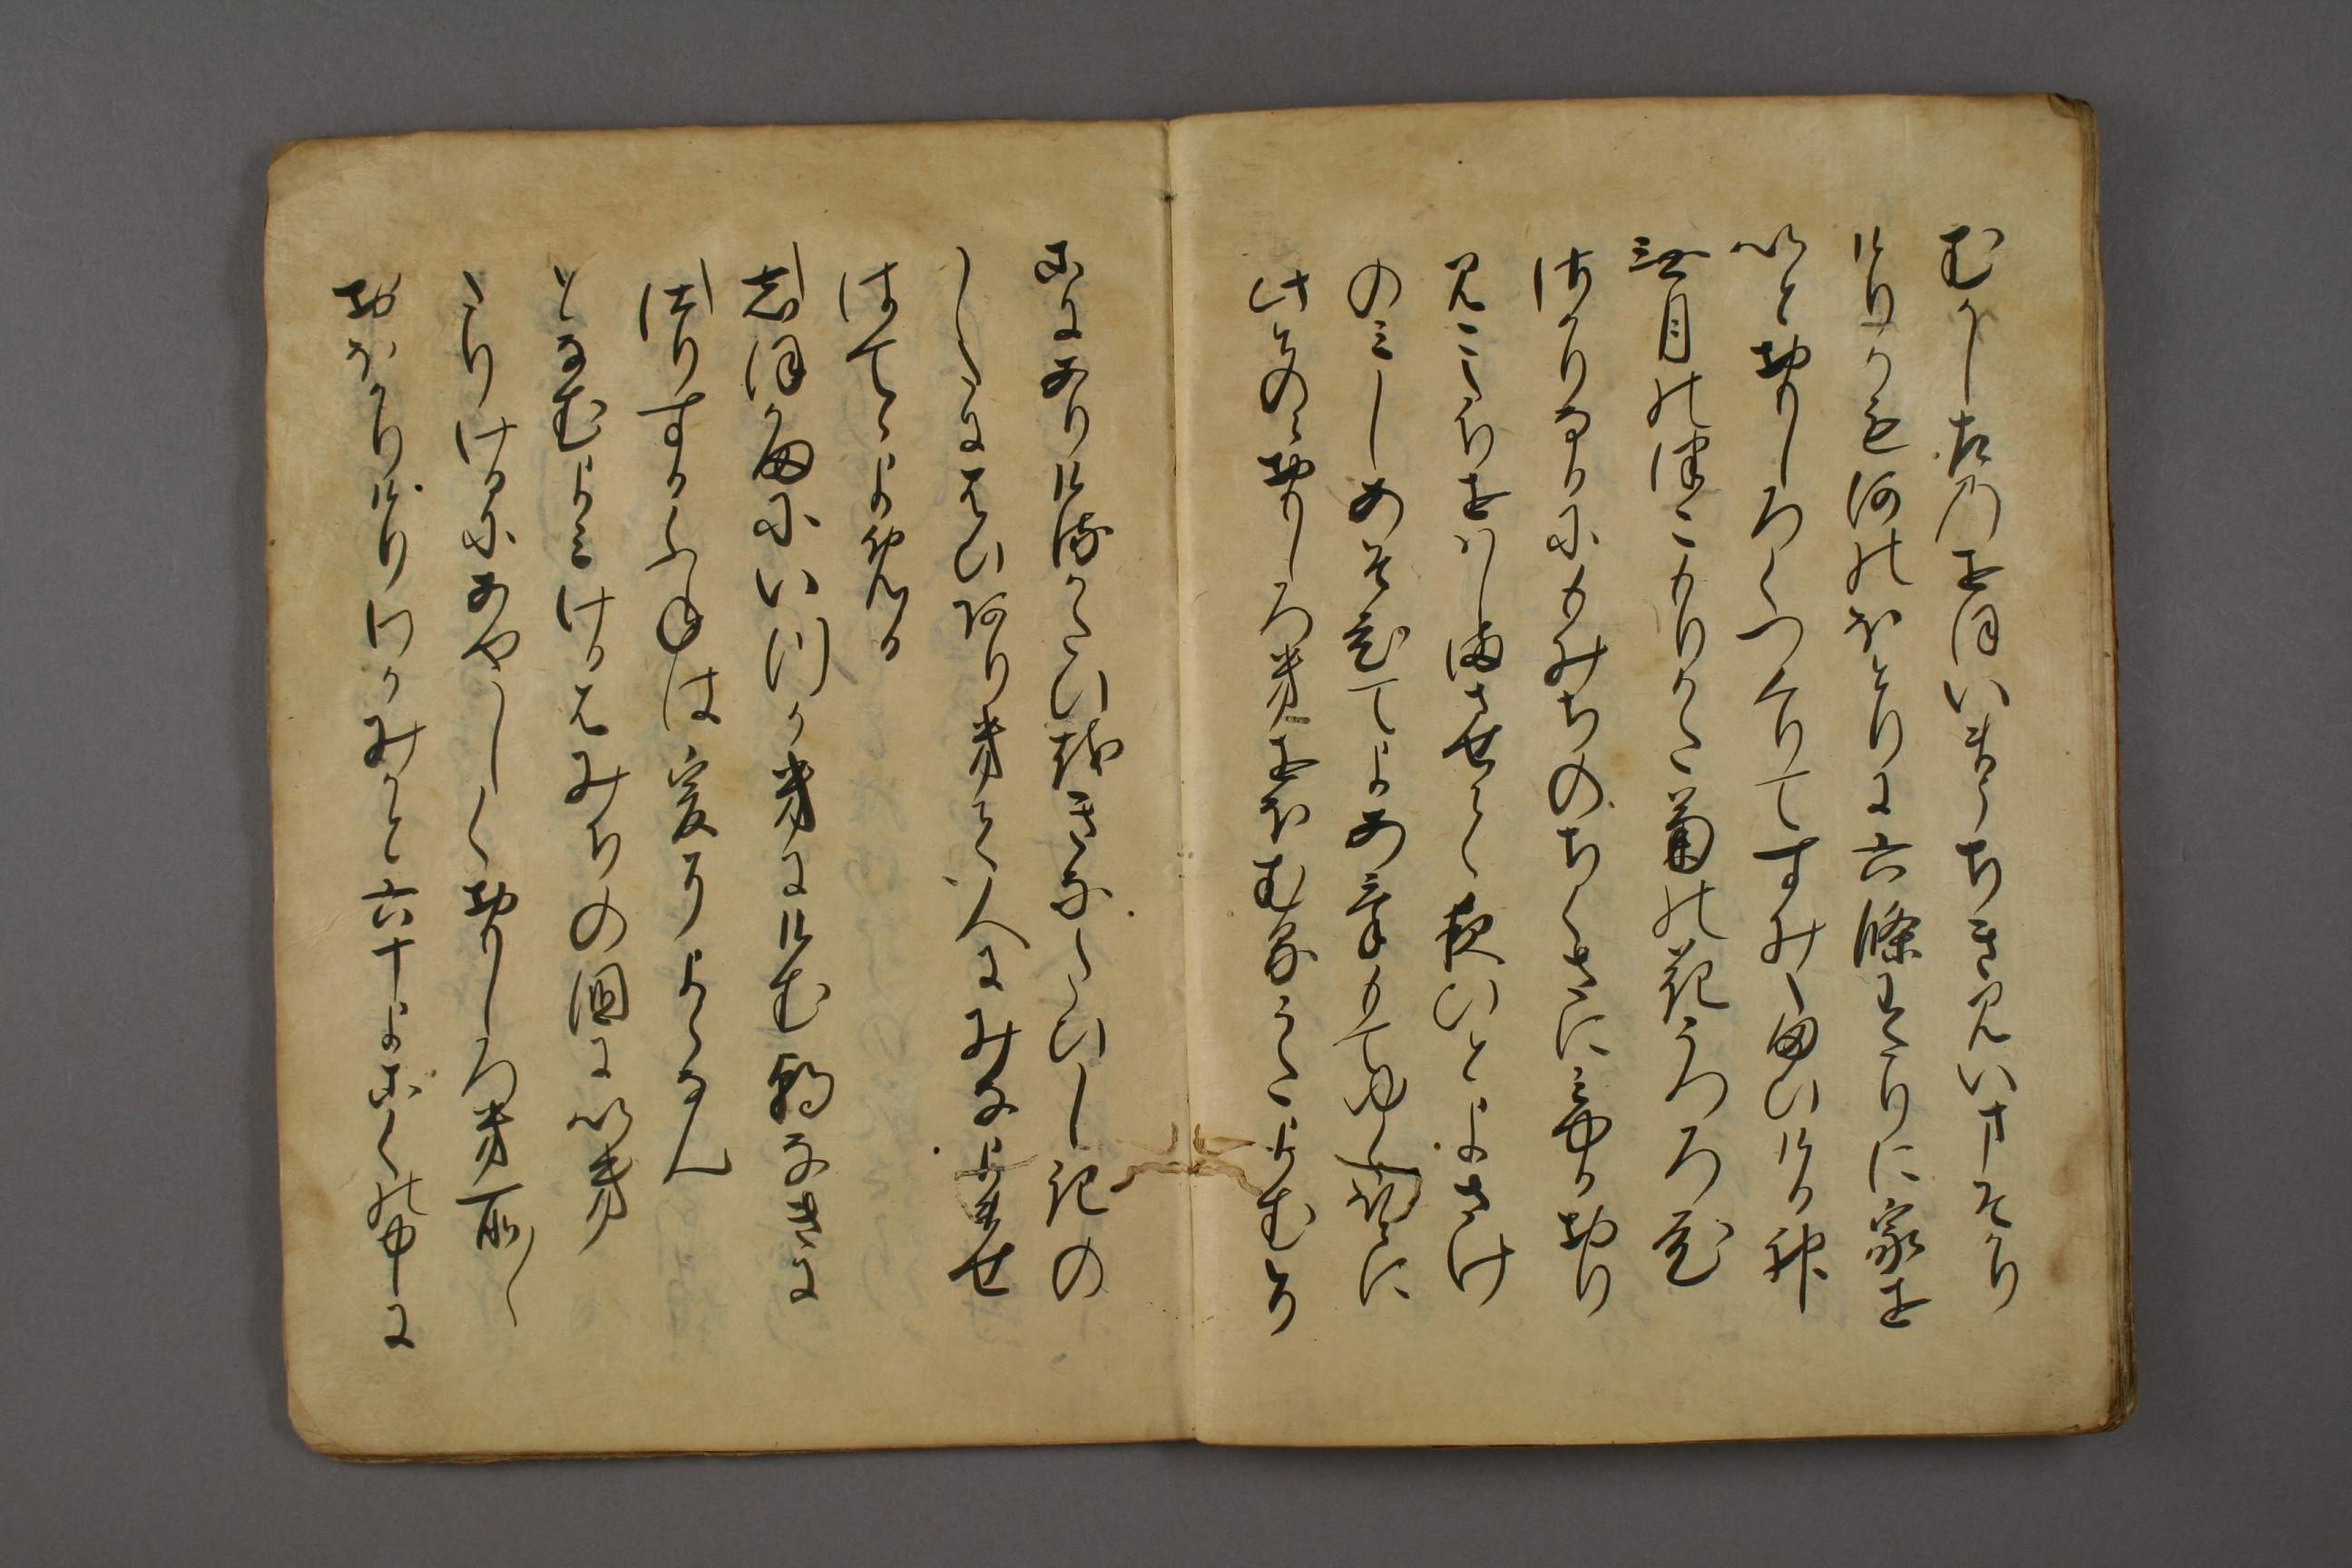 むかし左乃おほいまうちきみいまそかり
けりかも河のほとりに六條わたりに家を
いとおもしろくつくりてすみたまひける神
無月のつこもりかた菊の花うつろひ
さかりなるにもみちのちくさにみゆるおり
みこたちをはしまさせて夜ひとよさけ
のみしあそひてよあけもてゆくほとに
此とのゝおもしろきをほむるうたよむそ
こにありけるかたい於きなたいしきの
したにはひありきて人にみなよませ
はてゝよめる
志ほかまにいつかきにけむ朝なきに
つりするふねは爰によらなん
となむよみけるはみちの國にいき
たりけるにあやしくおもしろき所〱
おほかりけりわかみかと六十よこくの中に